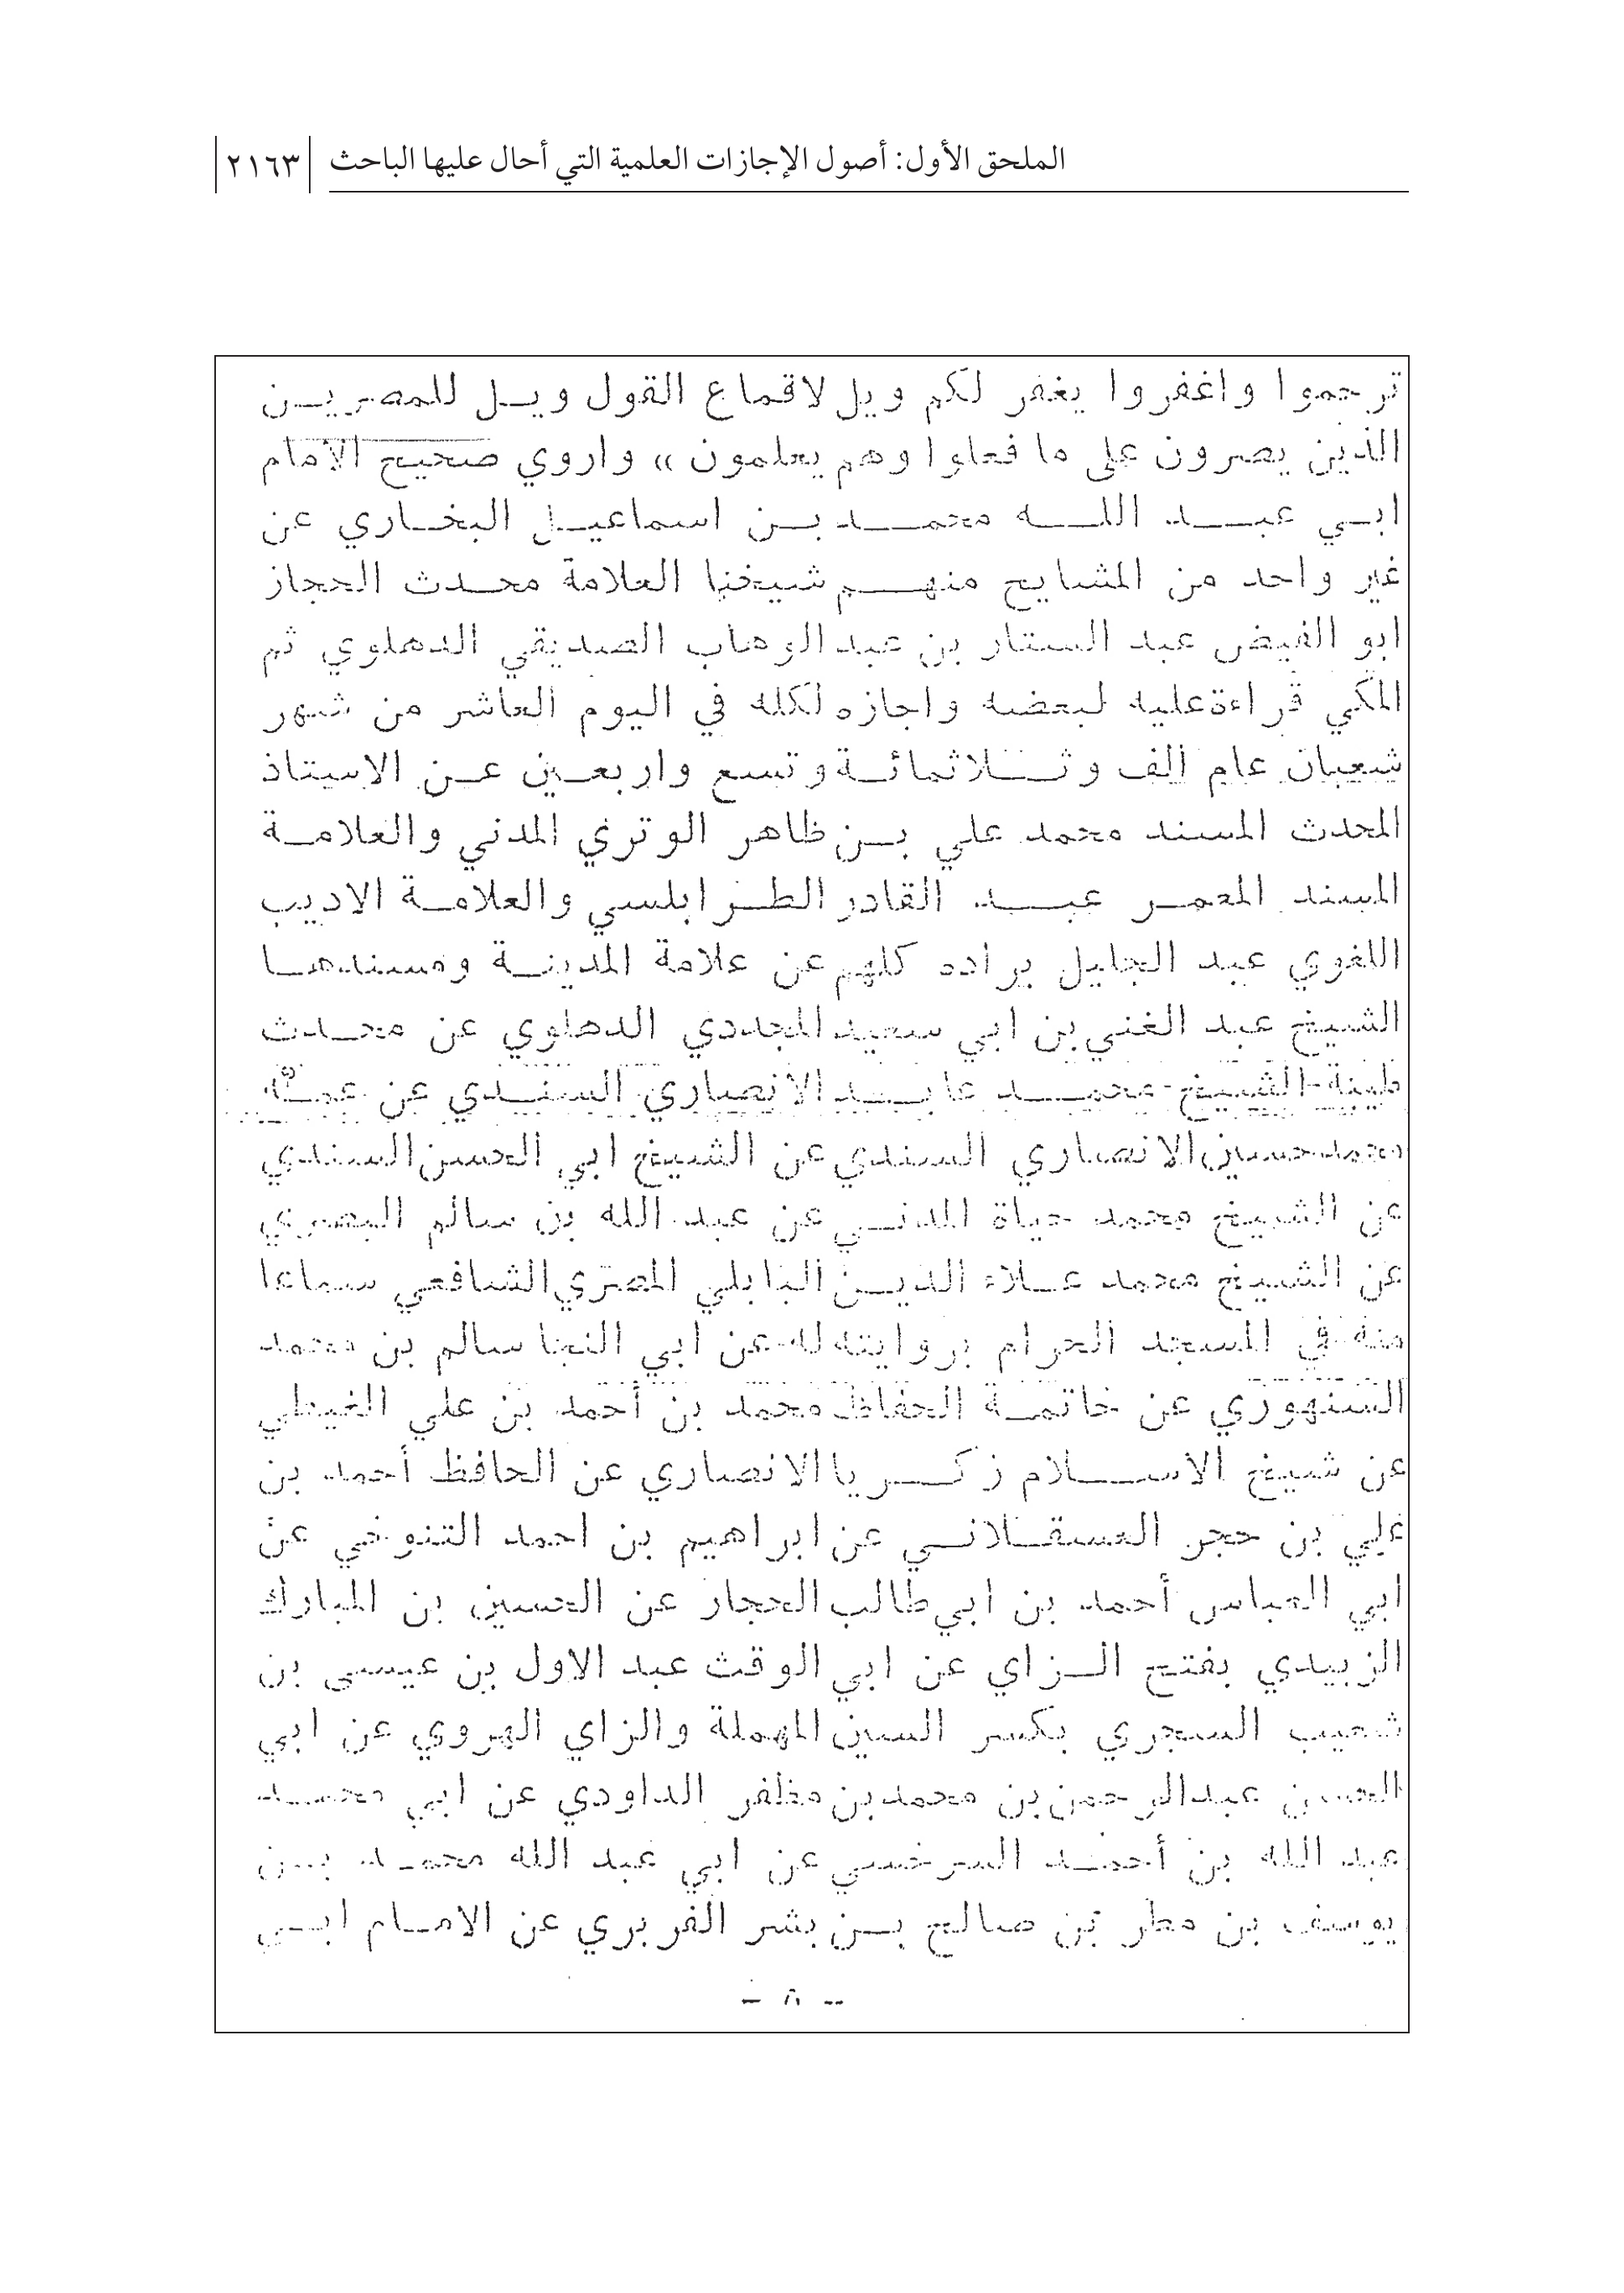 الملحق الأول: أصول الإجازات العلمية التي أحال عليها الباحث
٢١٦٣
ترحموا واغفروا يغفر لكم ويل لاقماع القول ويــل للمصريــن
الذين يصرون على ما فعلوا وهم يعلمون » واروي صحيح الامام
ابــي عبـــد اللـــه محمـــد بــن اسماعيــل البخــاري عن
غير واحد من المشايخ منهـــم شيخنا العلامة محــدث الحجاز
ابو الفيض عبد الستار بن عبد الوهاب الصديقي الدهلوي ثم
المكي قراءة عليه لبعضه واجازه لكله في اليوم العاشر من شهر
شعبان عام الف وثــلاثمائــة وتسع واربعــين عــن الاستاذ
المحدث المسند محمد علي بــن ظاهر الوتري المدني والعلامــة
المسند المعمــر عبـــد القادر الطــرابلسي والعلامــة الاديب
اللغوي عبد الجليل براده كلهم عن علامة المدينــة ومسندهــا
الشيخ عبد الغني بن ابي سعيد المجددي الدهلوي عن محــدث
طيبة الشيخ محمـــد عابـــد الانصاري السنــدي عن عمــه
محمد حسين الانصاري السندي عن الشيخ ابي الحسن السندي
عن الشيخ محمد حياة المدنــي عن عبد الله بن سالم البصري
عن الشيخ محمد عــلاء الديــن البابلي المصري الشافعي سماعا
منه في المسجد الحرام بروايته له عن ابي النجا سالم بن محمد
السنهوري عن خاتمــة الحفاظ محمد بن أحمد بن علي الغيطي
عن شيخ الاســـلام زكـــريا الانصاري عن الحافظ أحمد بن
علي بن حجر العسقــلانــي عن ابراهيم بن احمد التنوخي عن
ابي العباس أحمد بن ابي طالب الحجار عن الحسين بن المبارك
الزبيدي بفتح الــزاي عن ابي الوقت عبد الاول بن عيسى بن
شعيب السجري بكسر السين المهملة والزاي الهروي عن ابي
الحسن عبدالرحمن بن محمد بن مظفر الداودي عن ابي محمــد
عبد الله بن أحمــد السرخسي عن ابي عبد الله محمــد بــن
يوسف بن مطر بن صالح بــن بشر الفربري عن الامــام ابــي
– ٨ –